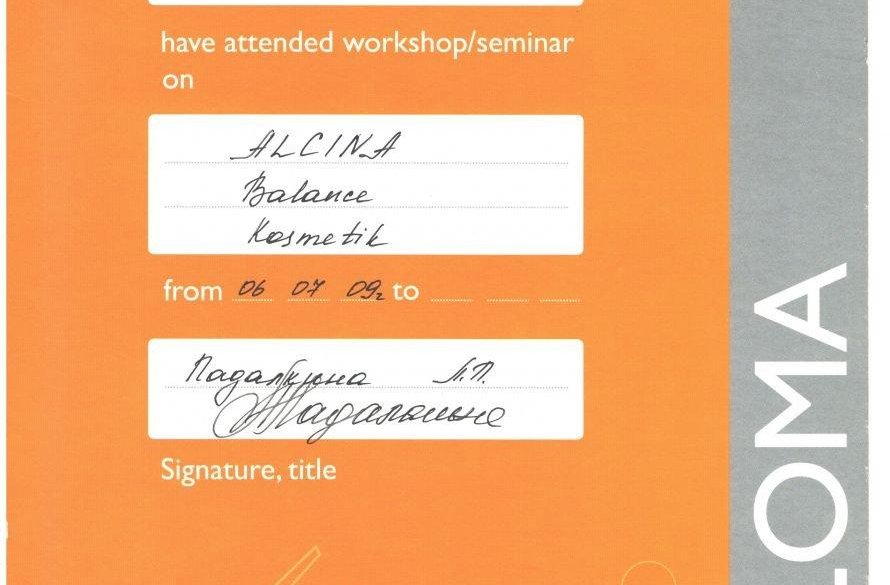 have attended workshop/seminar
on
ALCINA
Balance
Kosmetik
from 06 07 09г to
Падалкина Л.П.
Signature, title
LOMA